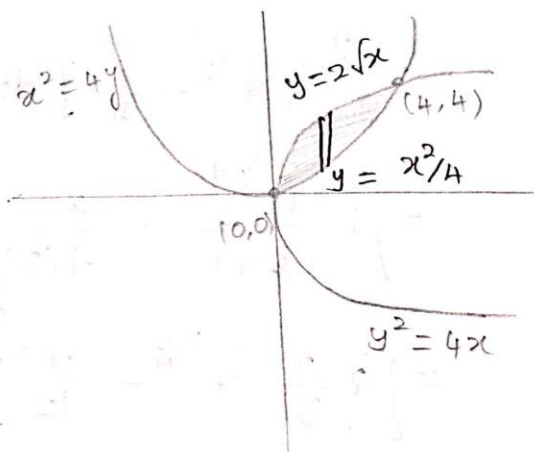 x² = 4y
y = 2√x
(4, 4)
y = x²/4
(0,0)
y² = 4x